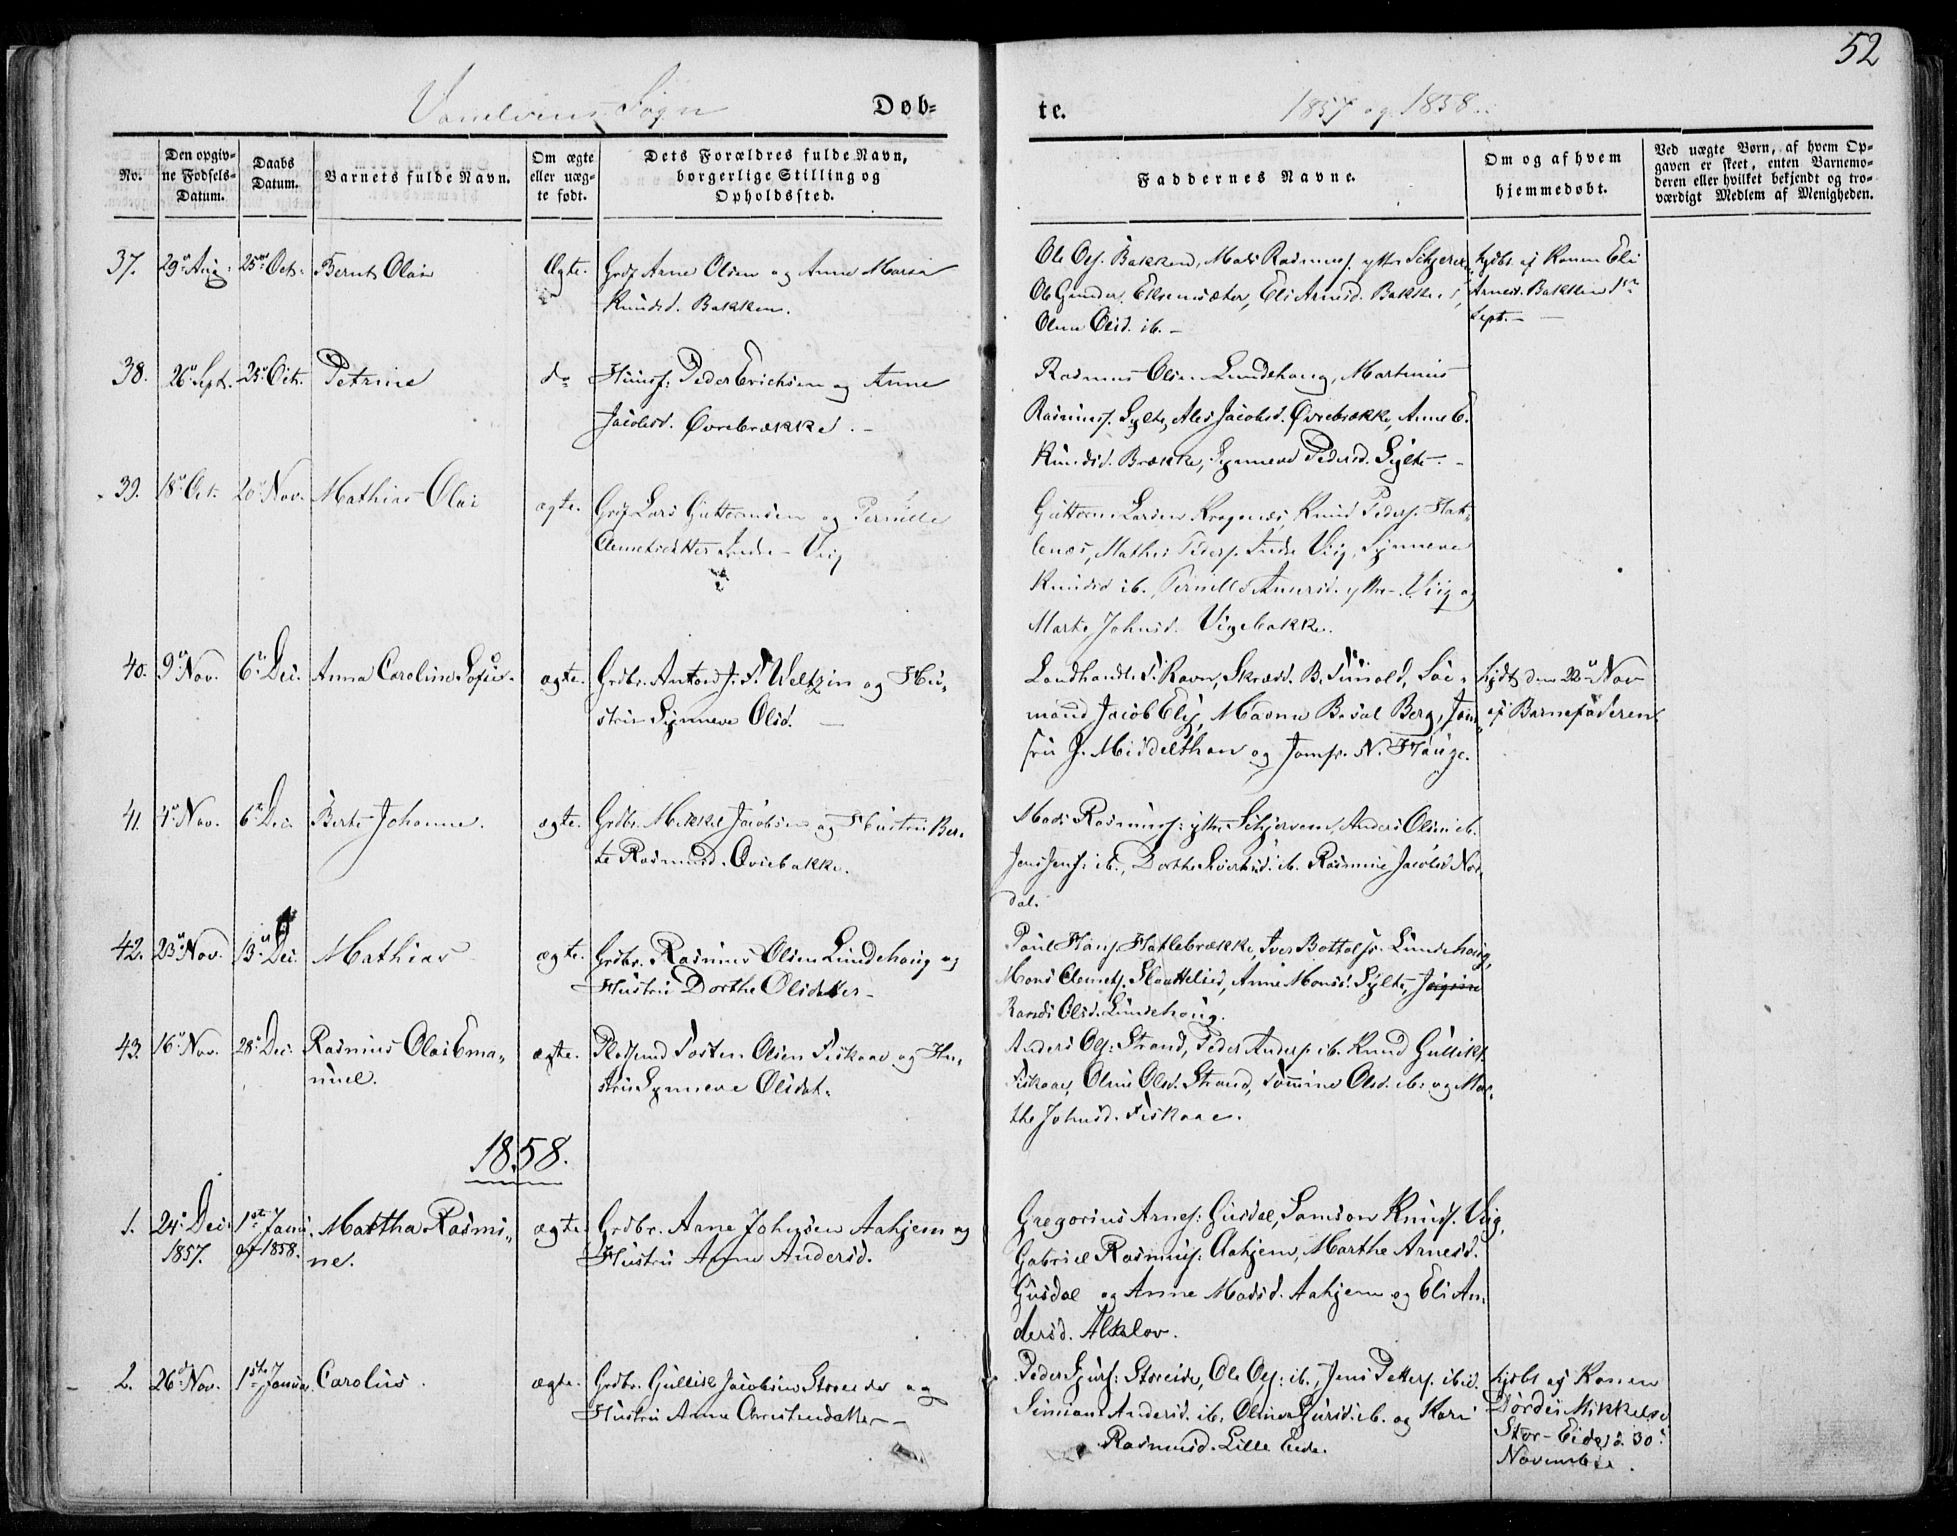 52
Vanelvens Sogn
Døb-
te.
1857 og 1858.
No.
Den opgiv-
ne Fødsels-
Datum.
Daabs
Datum.
Barnets fulde Navn.
Om ægte
eller uæg-
te født.
Dets Forældres fulde Navn,
borgerlige Stilling og
Opholdssted.
Faddernes Navne.
Om og af hvem
hjemmedøbt.
Ved uægte Børn, af hvem Op-
gaven er skeet, enten Barnemo-
deren eller hvilket bekjendt og tro-
værdigt Medlem af Menigheden.
37. 29 Aug. 25 Oct. Bernt Olai Ægte.
Arne Olsen og Anne Maria
Knudsd. Bakken.
Ole Bakken, Mads Rasmus. ytter
Ole Eli Arnesd.
Olsd. ib. –
af Konen Eli
Arnesd. Bakken 1
Sept. –
38. 26 Sept. 25 Oct. Petrine do
Huusf: Peder Erichsen og Anne
Jacobsd. Øvrebrække. –
Rasmus Olsen Lundehoug, Martinus
Rasmus. Sylte, Jacobsd. Øvrebrække, Anne
Knudsd. Brække, Synneve Pedersd. Sylte. –
39. 18 Oct. 20 Nov. Mathias Olai ægte.
Lars Guttormsen og Pernille
Indre – Viig
Guttorm Larsen Kragenes, Knud Peders.
Mathis Peders. Indre Viig, Synneve
Knudsd ib. Pernille ytter. Viig og
Marte Johnsd. Vigebakke.
40. 9 Nov. 6 Dec. Anna Caroline Sofie. ægte.
Grdbr. Anton J. F. Weltzin og Hu-
stru Synneve Olsd. –
Landhandl. Ravn, Skræd. B.
mand Jacob Madme Berg, Jom-
fru J. Middelthon og Jomfr. N. Hauge.
hjdt den 22 Nov
af Barnefaderen
41. 4 Nov. 6 Dec. Berte Johanne. ægte.
Grdbr. Mikkel Jacobsen og Hustru Ber-
te Rasmusd. Aviebakke.
Mads Rasmuss: ytter Anders Olsen ib.
Jens Jens: ib., Dorthe ib. Rasmine Jacobsd Nor-
dal.
42. 23 Nov. 13 Dec. Mathias ægte.
Grdbr. Rasmus Olsen Lundehoug og
Hustru Dorthe Olsdatter –
Poul Hans. Hatlebrække, Iver Lundehoug,
Mons Clemets. Anne Monsd. Sylte,
Olsd. Lundehoug.
43. 16 Nov. 28 Dec. Rasmus Olai Ema-
nuel. ægte.
Tosten Olsen Fiskaae og Hu-
stru Synneve Olsdat.
Anders Strand, Peder Anders. ib. Knud Gulliks
Fiskaae, Oline Olsd. Strand, Olsd. ib. og Mar-
the Johnsd. Fiskaae.
1858.
1. 24 Dec: 1857. 1ste Janu. 1858. Martha Rasmi-
ne. ægte.
Grdbr. Arne Johnsen Aahjem og
Hustru Anne Andersd.
Gregorius Arnes: Gusdal, Samson Knuds. Viig,
Gabriel Rasmus: Aahjem, Marthe Arnesd.
Gusdal og Anne Madsd. Aahjem og Eli An-
dersd. Alkelov.
2. 26 Nov. 1ste Januar Carolus. ægte.
Grdbr. Gullik Jacobsen Storeide og
Hustru Anne Christensdatter –
Peder Sjurs: Storeide, Ole ib., Jens Petters. ibid.
Andersd. ib. Oline Sjursd. ib. og Kari
Rasmusd. Lille Eide.
hjdbt af Konen
Dordei Mikkelsd
Stor-Eide, d. 30
November.